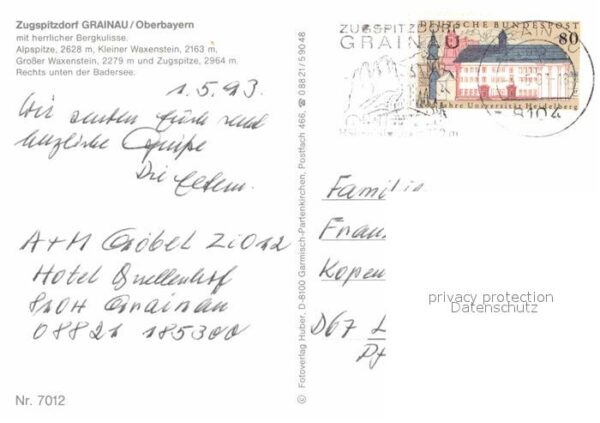 Zugspitzdorf GRAINAU/Oberbayern
mit herrlicher Bergkulisse.
Alpspitze, 2628 m, Kleiner Waxenstein, 2163 m,
Großer Waxenstein, 2279 m und Zugspitze, 2964 m.
Rechts unten der Badersee.
1.5.93
Wir senden Euch
herzliche Grüße
Die Eltern.
A+M Göbel
Hotel Quellenhof
8104 Grainau
08821 185300
Nr. 7012
© Fotoverlag Huber, D-8100 Garmisch-Partenkirchen, Postfach 466, ☎ 08821/59048
ZUGSPITZDORF
GRAINAU
DEUTSCHE BUNDESPOST
80
Jahre Universität Heidelberg
8104
Familie
Fran
Kopen
D67 L
Pf
privacy protection
Datenschutz